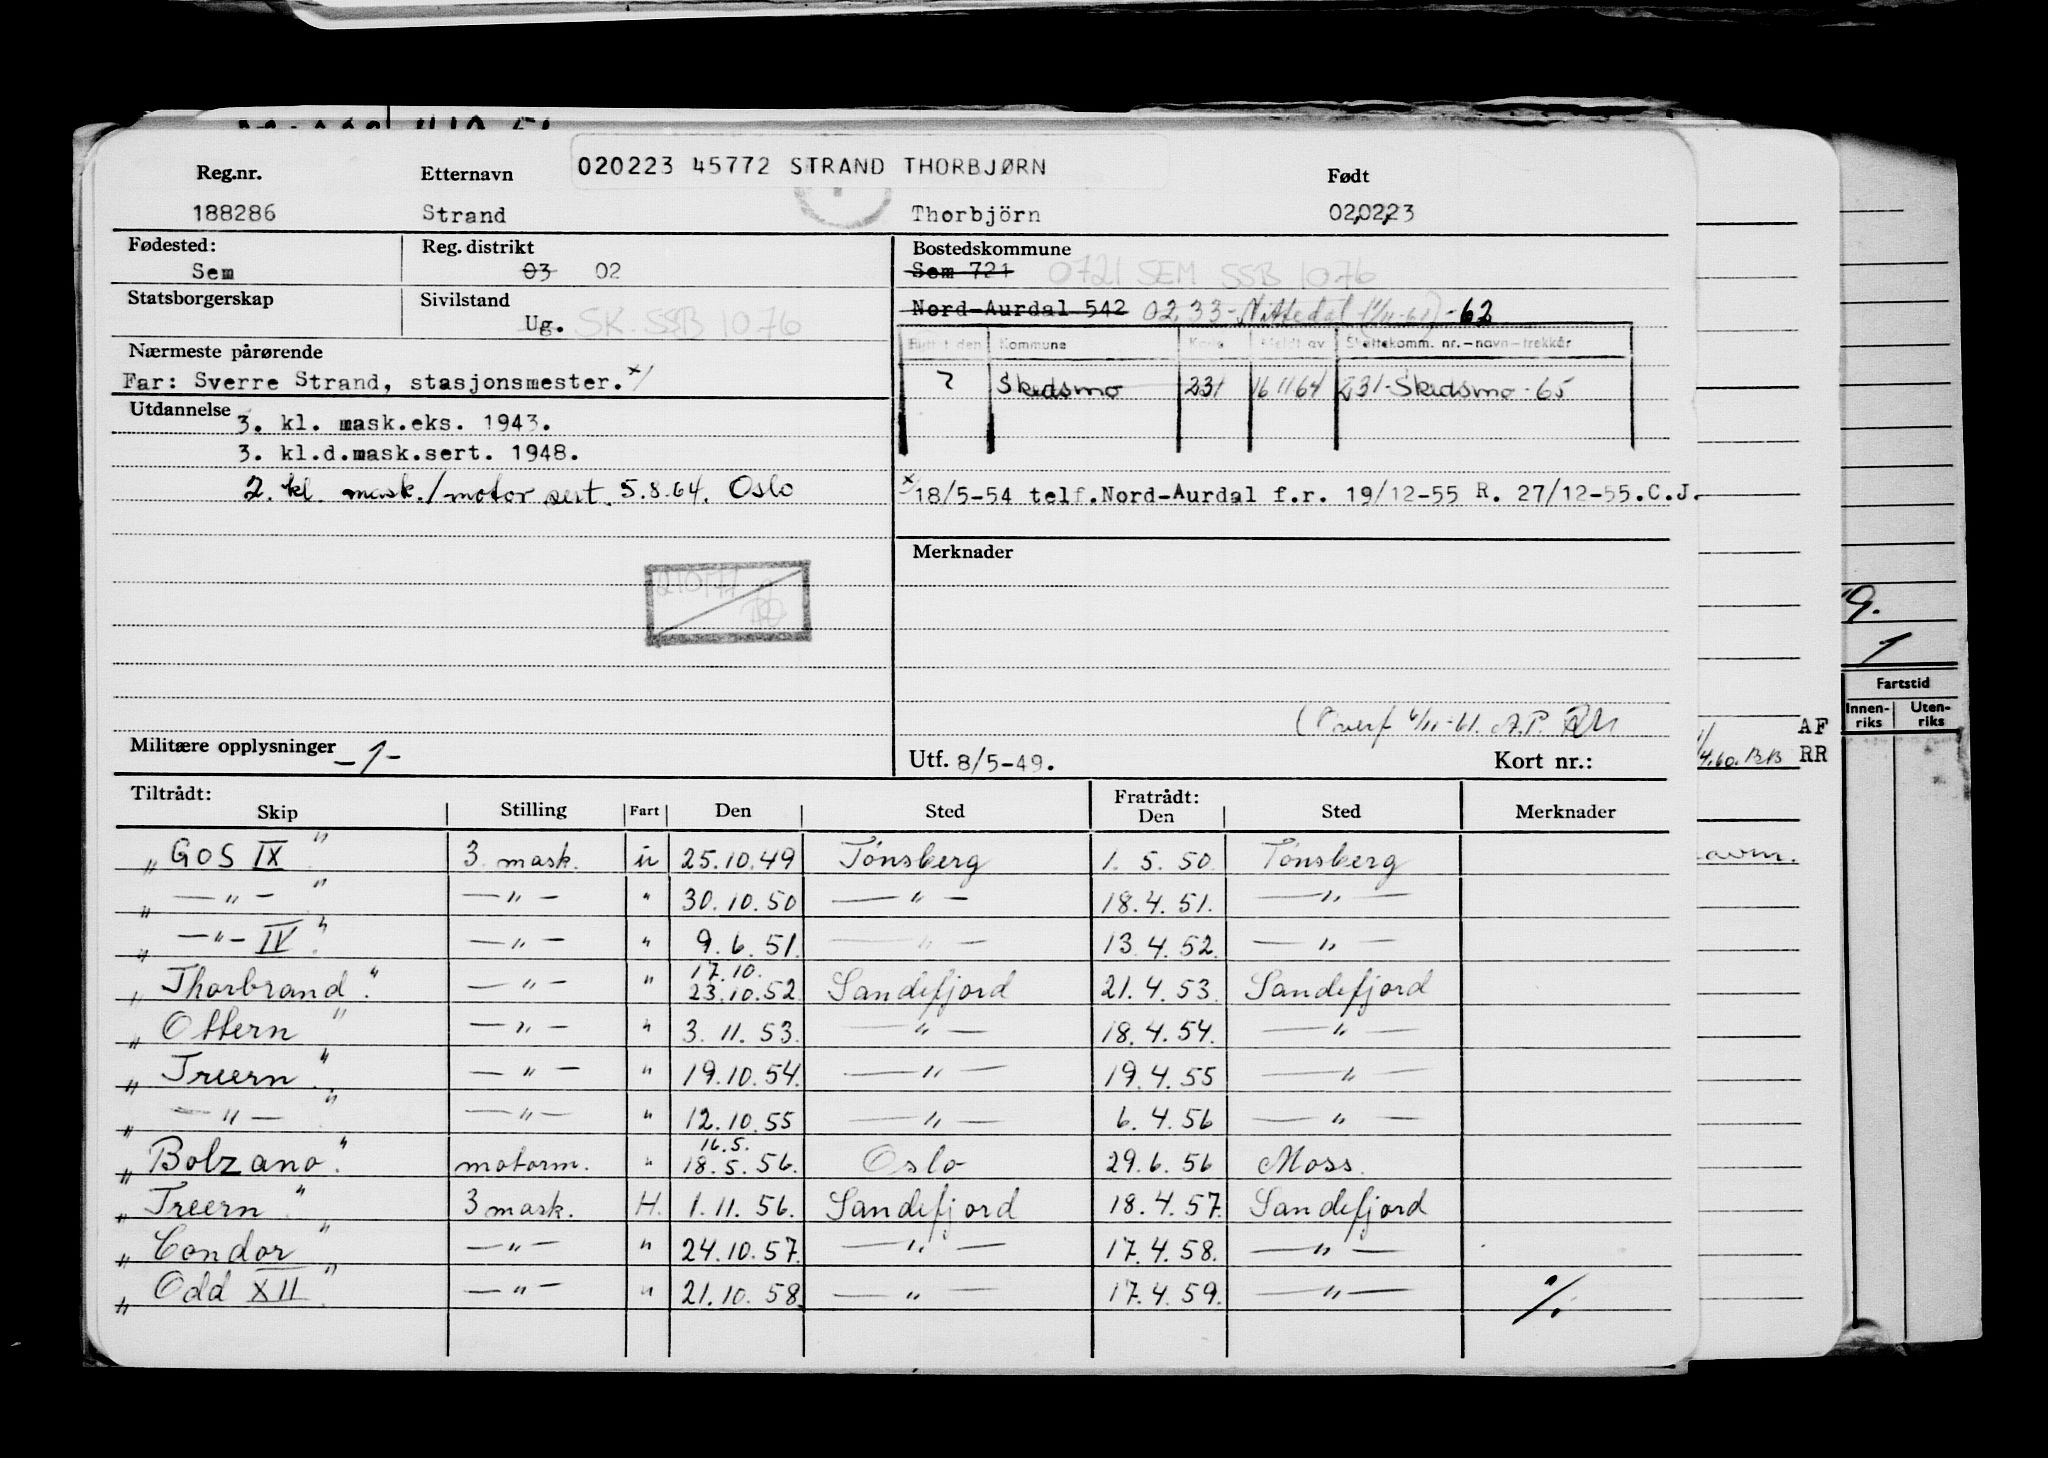 020223 45772 STRAND THORBJØRN
Reg.nr. Etternavn Født
188286 Strand Thorbjörn 02.02.23
Fødested: Reg. distrikt Bostedskommune
Sem 03 02 Sem 721 0721 SEM SSB 1076
Statsborgerskap Sivilstand Nord-Aurdal 542 02.33-Nittedal (1/11-61)-62
Ug. SK. SSB 1076
Flyttet den Kommune Meldt av Skattekomm. nr.-navn-trekkår
Nærmeste pårørende
Far: Sverre Strand, stasjonsmester. x/ ? Skedsmo 231 16 11 64 231-Skedsmo-65
Utdannelse
3. kl. mask.eks. 1943.
3. kl.d.mask.sert. 1948.
2. kl. mask./motor sert. 5.8.64. Oslo
x 18/5-54 telf.Nord-Aurdal f.r. 19/12-55 R. 27/12-55.C.J.
Merknader
Militære opplysninger -1- Utf. 8/5-49. Kort nr.:
Tiltrådt: Fratrådt:
Skip Stilling Fart Den Sted Den Sted Merknader
"GOS IX" 3 mask. u 25.10.49 Tönsberg 1. 5. 50. Tönsberg
" —"— " —"— " 30.10.50 —"— 18.4.51. —"—
" —"— IV." —"— " 9.6.51. —"— 13.4.52. —"—
17.10.
"Thorbrand". —"— " 23.10.52. Sandefjord 21.4.53. Sandefjord
"Ottern" —"— " 3.11.53. —"— 18.4.54. —"—
"Treern". —"— " 19.10.54. —"— 19.4.55 —"—
" —"— " —"— " 12.10.55 —"— 6.4.56 —"—
16.5.
"Bolzano". motorm. " 18.5.56. Oslo 29.6.56 Moss.
"Treern". 3 mask. H. 1.11.56. Sandefjord 18.4.57. Sandefjord
"Condor" —"— " 24.10.57. —"— 17.4.58. —"—
"Odd XII". —"— " 21.10.58. —"— 17.4.59. —"— %.
9.
1
Fartstid
Innen-riks Uten-riks
AF
RR